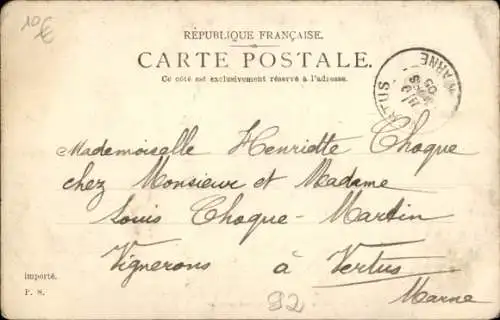 10€
RÉPUBLIQUE FRANÇAISE.
CARTE POSTALE.
Ce côté est exclusivement réservé à l'adresse.
MARNE
Mademoiselle Henriette Choque
chez Monsieur et Madame
Louis Choque-Martin
Vignerons à Vertus
Marne
importé.
P. S.
92